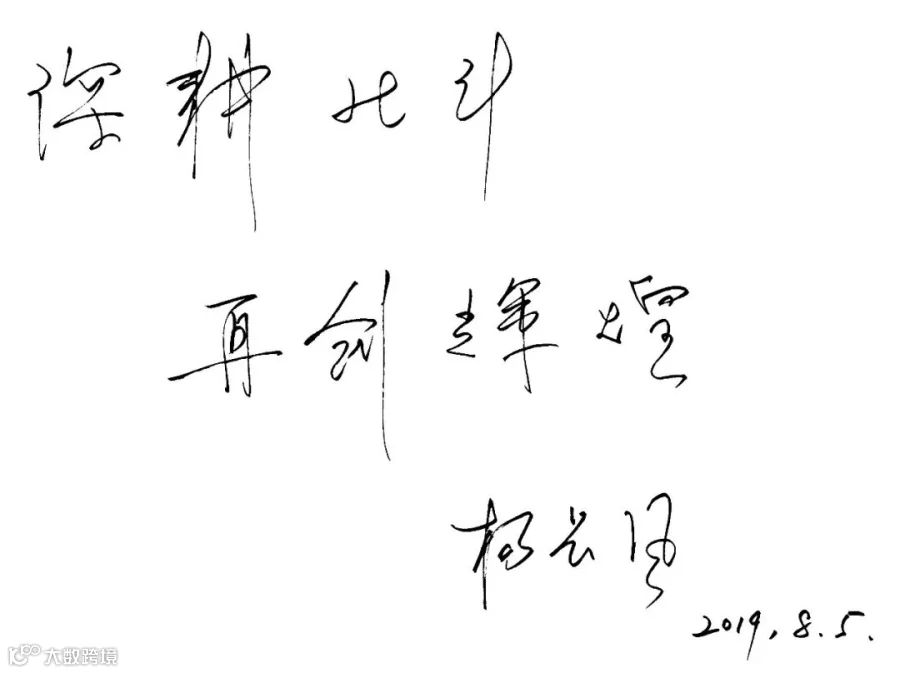 深耕北斗
再创辉煌
杨长风
2019.8.5.
大数跨境